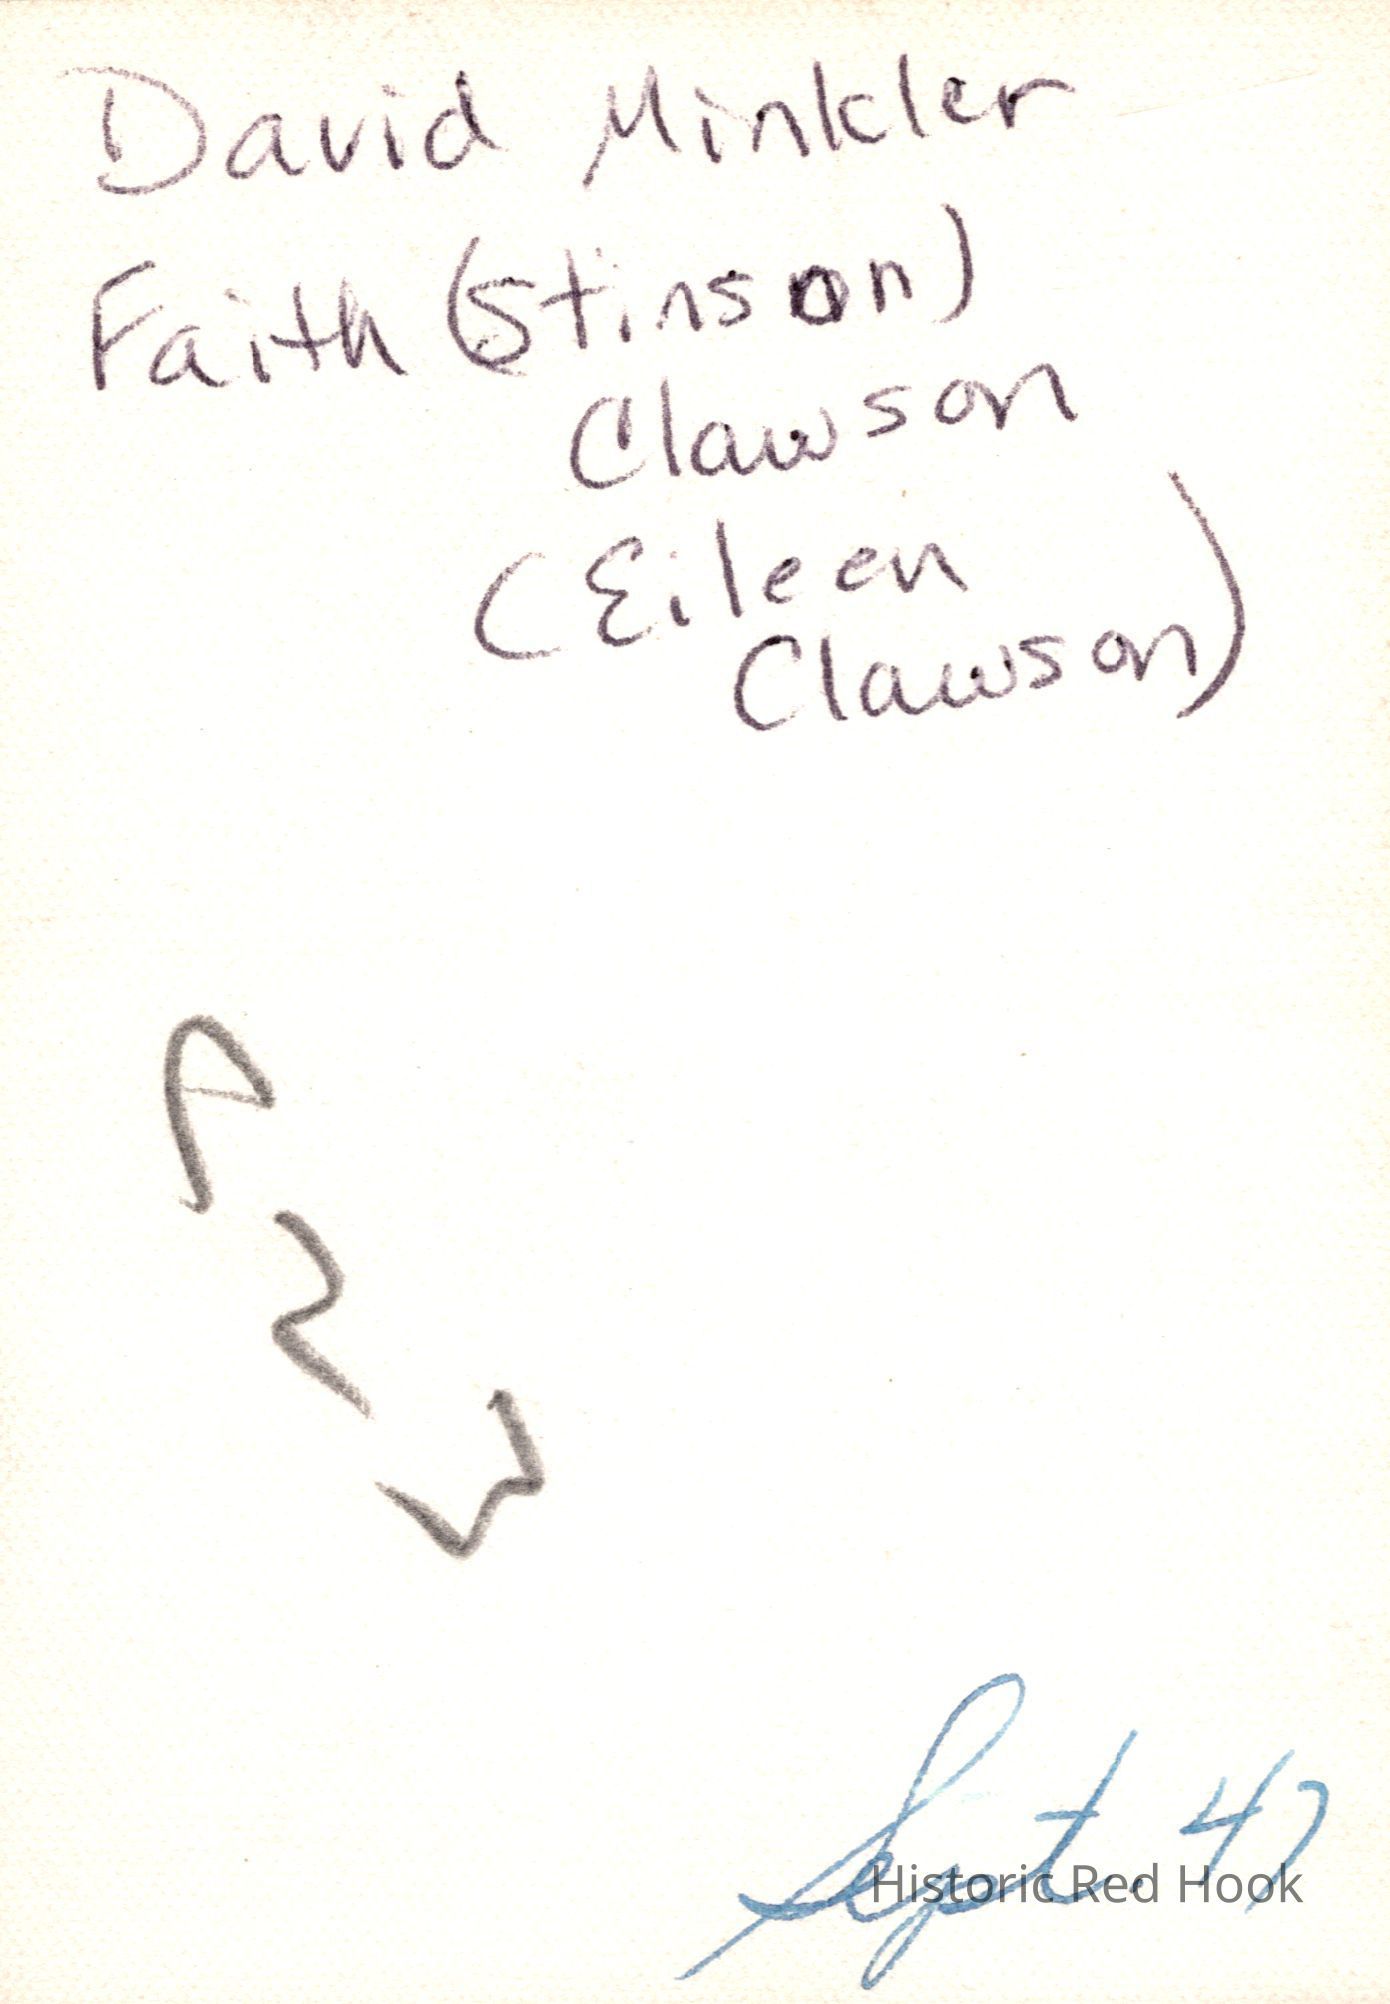 David Minkler
Faith (Stinson)
Clawson
(Eileen
Clawson)
Sept. 47
Historic Red Hook